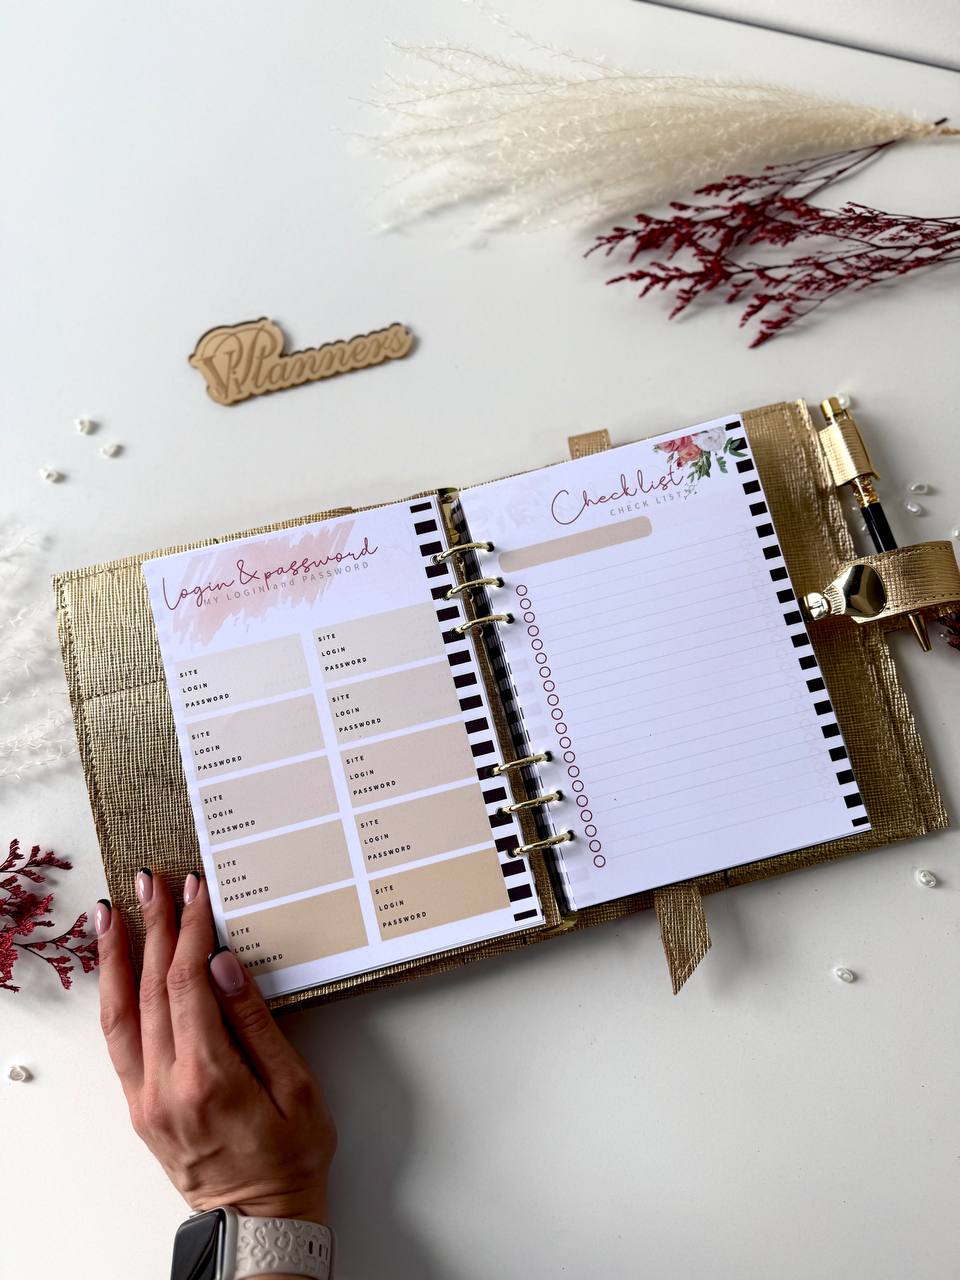 VPlanners
Login & password
MY LOGIN and PASSWORD
SITE
LOGIN
PASSWORD
SITE
LOGIN
PASSWORD
SITE
LOGIN
PASSWORD
SITE
LOGIN
PASSWORD
SITE
LOGIN
PASSWORD
SITE
LOGIN
PASSWORD
SITE
LOGIN
PASSWORD
SITE
LOGIN
PASSWORD
SITE
LOGIN
PASSWORD
SITE
LOGIN
PASSWORD
Check list
CHECK LIST